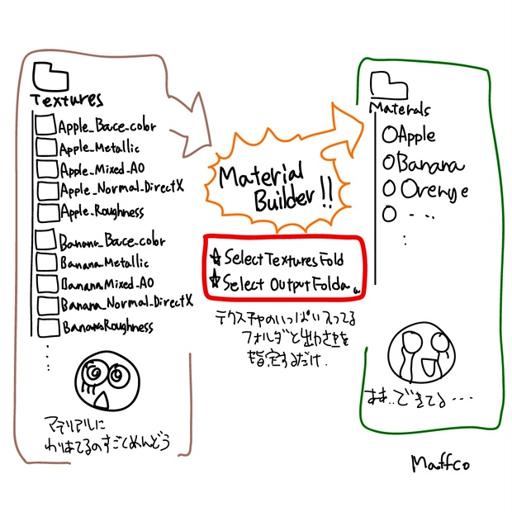 Textures
Apple_Bace_color
Apple_Metallic
Apple_Mixed_AO
Apple_Normal_DirectX
Apple_Roughness
Banana_Bace_color
Banana_Metallic
Banana_Mixed_AO
Banana_Normal_DirectX
Banana_Roughness
マテリアルに
わりあてるのすごくめんどう
Material
Builder!!
☆Select Textures Fold
☆Select Output Folda
テクスチャのいっぱい入ってる
フォルダと出力さきを
指定するだけ.
Materals
Apple
Banana
Orenge
ああ..できてる...
Maffco